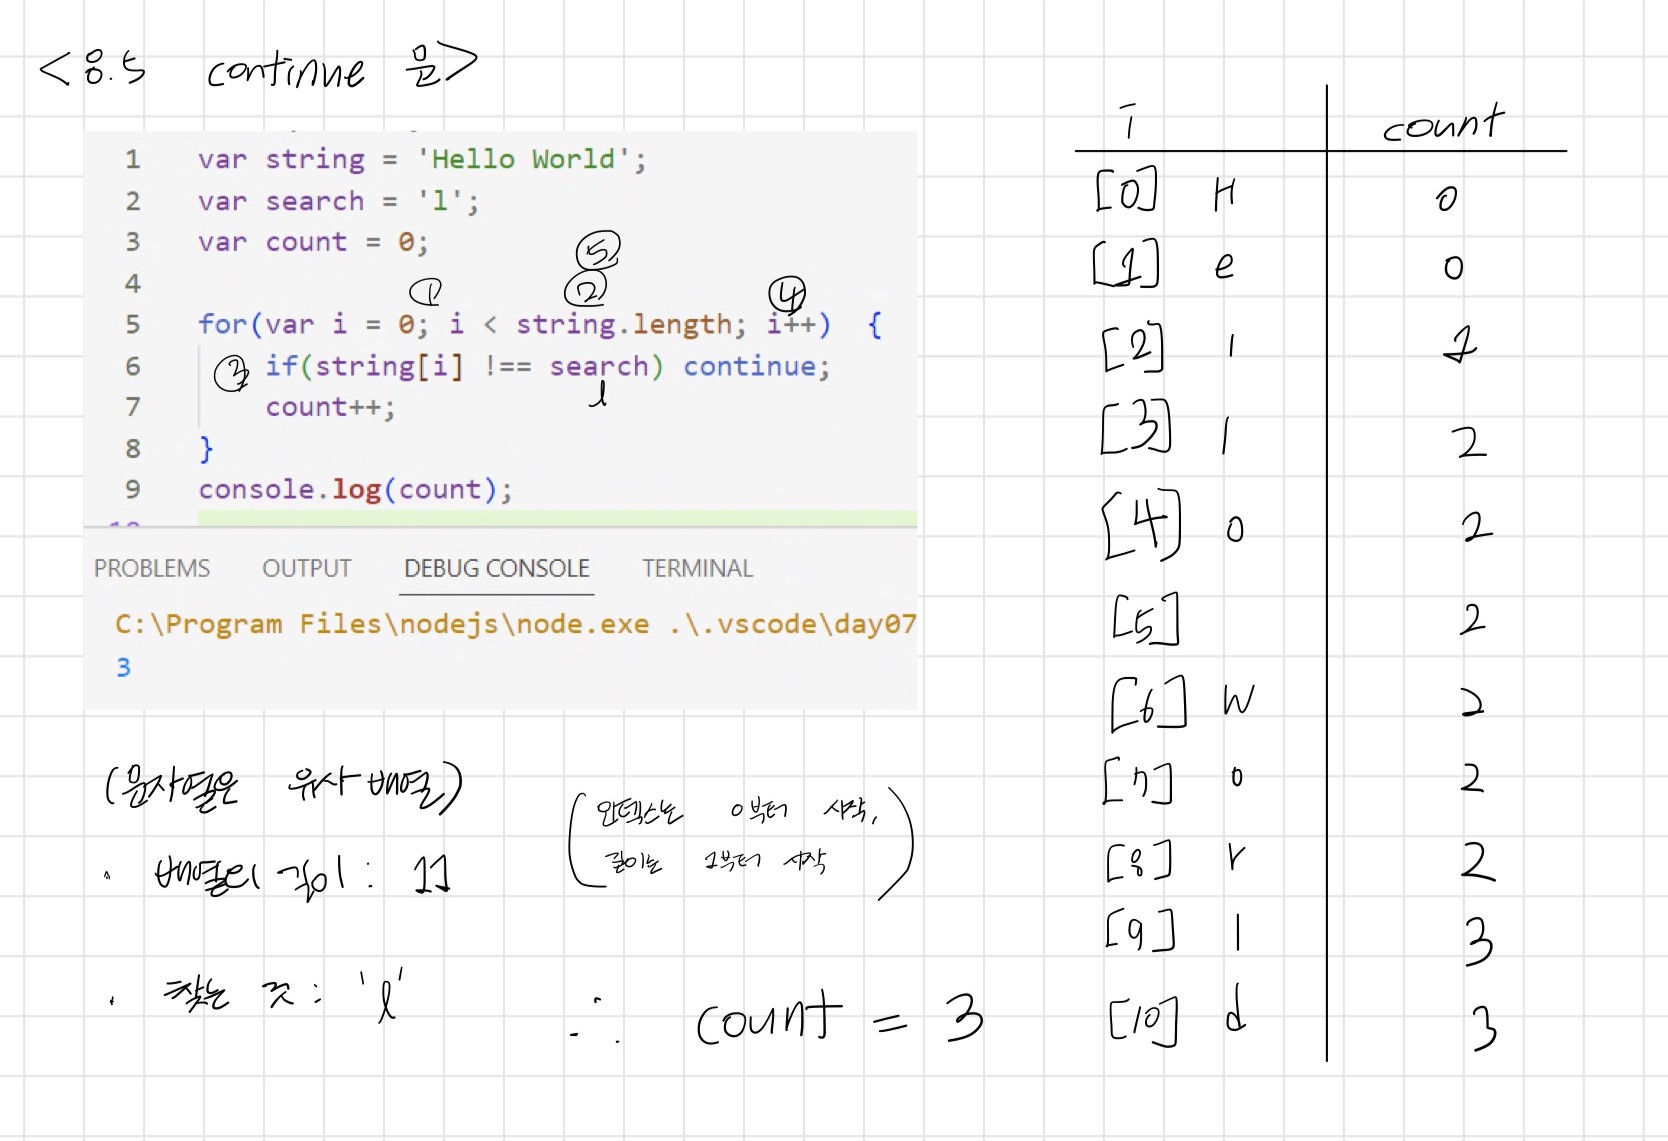 <8.5 continue 문>
1 var string = 'Hello World';
2 var search = 'l';
3 var count = 0;
⑤
4
① ② ④
5 for(var i = 0; i < string.length; i++) {
6 ③ if(string[i] !== search) continue;
l
7 count++;
8 }
9 console.log(count);
10
PROBLEMS OUTPUT DEBUG CONSOLE TERMINAL
C:\Program Files\nodejs\node.exe .\.vscode\day07
3
(문자열은 유사 배열)
· 배열의 길이 : 11
(인덱스는 0부터 시작,
길이는 1부터 시작)
· 찾는 것 : 'l'
∴ count = 3
i count
[0] H 0
[1] e 0
[2] l 1
[3] l 2
[4] o 2
[5] 2
[6] W 2
[7] o 2
[8] r 2
[9] l 3
[10] d 3